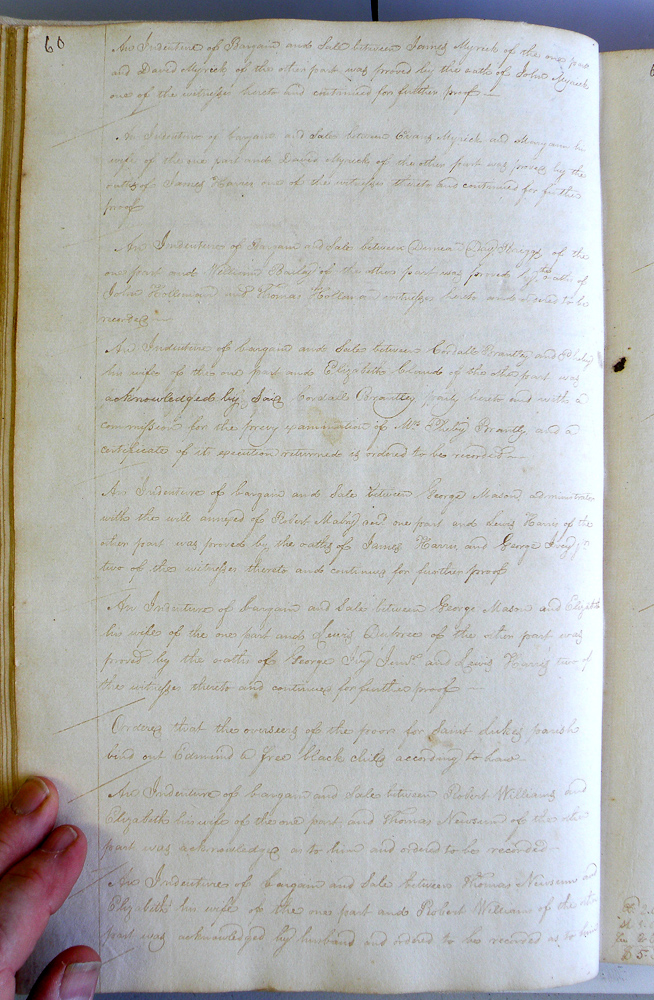 60
An Indenture of Bargain and Sale between James Myrick of the one part
and David Myrick of the other part was proved by the oath of John Myrick
one of the witnesses hereto and continued for further proof
An Indenture of bargain and Sale between Evans Myrick and his
wife of the one part and David Myrick of the other part was proved by the
oath of James Harris one of the witnesses thereto and continued for further
proof
An Indenture of Bargain and Sale between of the
one part and William Bailey of the other part was proved by the oaths of
John Holleman and Thomas Holleman witnesses hereto and ordered to be
recorded
An Indenture of bargain and Sale between Cordall Brantley and
his wife of the one part and Elizabeth of the other part was
acknowledged by Said Cordall Brantley party hereto and with a
commission for the privy examination of Mrs Brantly and a
certificate of its execution returned is ordered to be recorded
An Indenture of bargain and Sale between George Mason administrator
with the will annexed of Robert Mabry one part and Lewis Harris of the
other part was proved by the oaths of James Harris and George
two of the witnesses thereto and continued for further proof
An Indenture of bargain and Sale between George Mason and Elizabeth
his wife of the one part and Lewis of the other part was
proved by the oaths of George and Lewis Harris two of
the witnesses thereto and continued for further proof
Ordered that the overseers of the poor for Saint Lukes parish
bind out Edmund a free black child according to Law
An Indenture of bargain and Sale between Robert Williams and
Elizabeth his wife of the one part and Thomas Newsum of the other
part was acknowledged as to him and ordered to be recorded
An Indenture of bargain and Sale between Thomas Newsum and
Elizabeth his wife of the one part and Robert Williams of the other
part was acknowledged by husband and ordered to be recorded as to